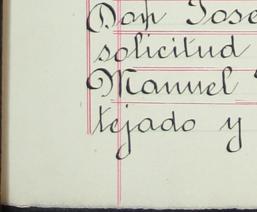 Don Jose
solicitud
Manuel
tejado y